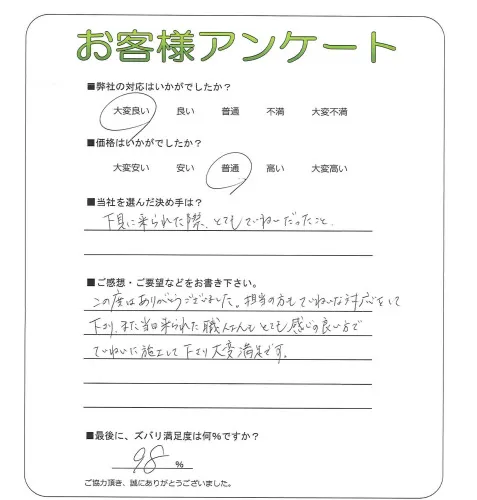 お客様アンケート
■弊社の対応はいかがでしたか？
大変良い 良い 普通 不満 大変不満
■価格はいかがでしたか？
大変安い 安い 普通 高い 大変高い
■当社を選んだ決め手は？
下見に来られた際、とてもていねいだったこと。
■ご感想・ご要望などをお書き下さい。
この度はありがとうございました。担当の方もていねいな対応をして
下さり、また当日来られた職人さんもとても感じの良い方で
ていねいに施工して下さり大変満足です。
■最後に、ズバリ満足度は何%ですか？
98 %
ご協力頂き、誠にありがとうございました。